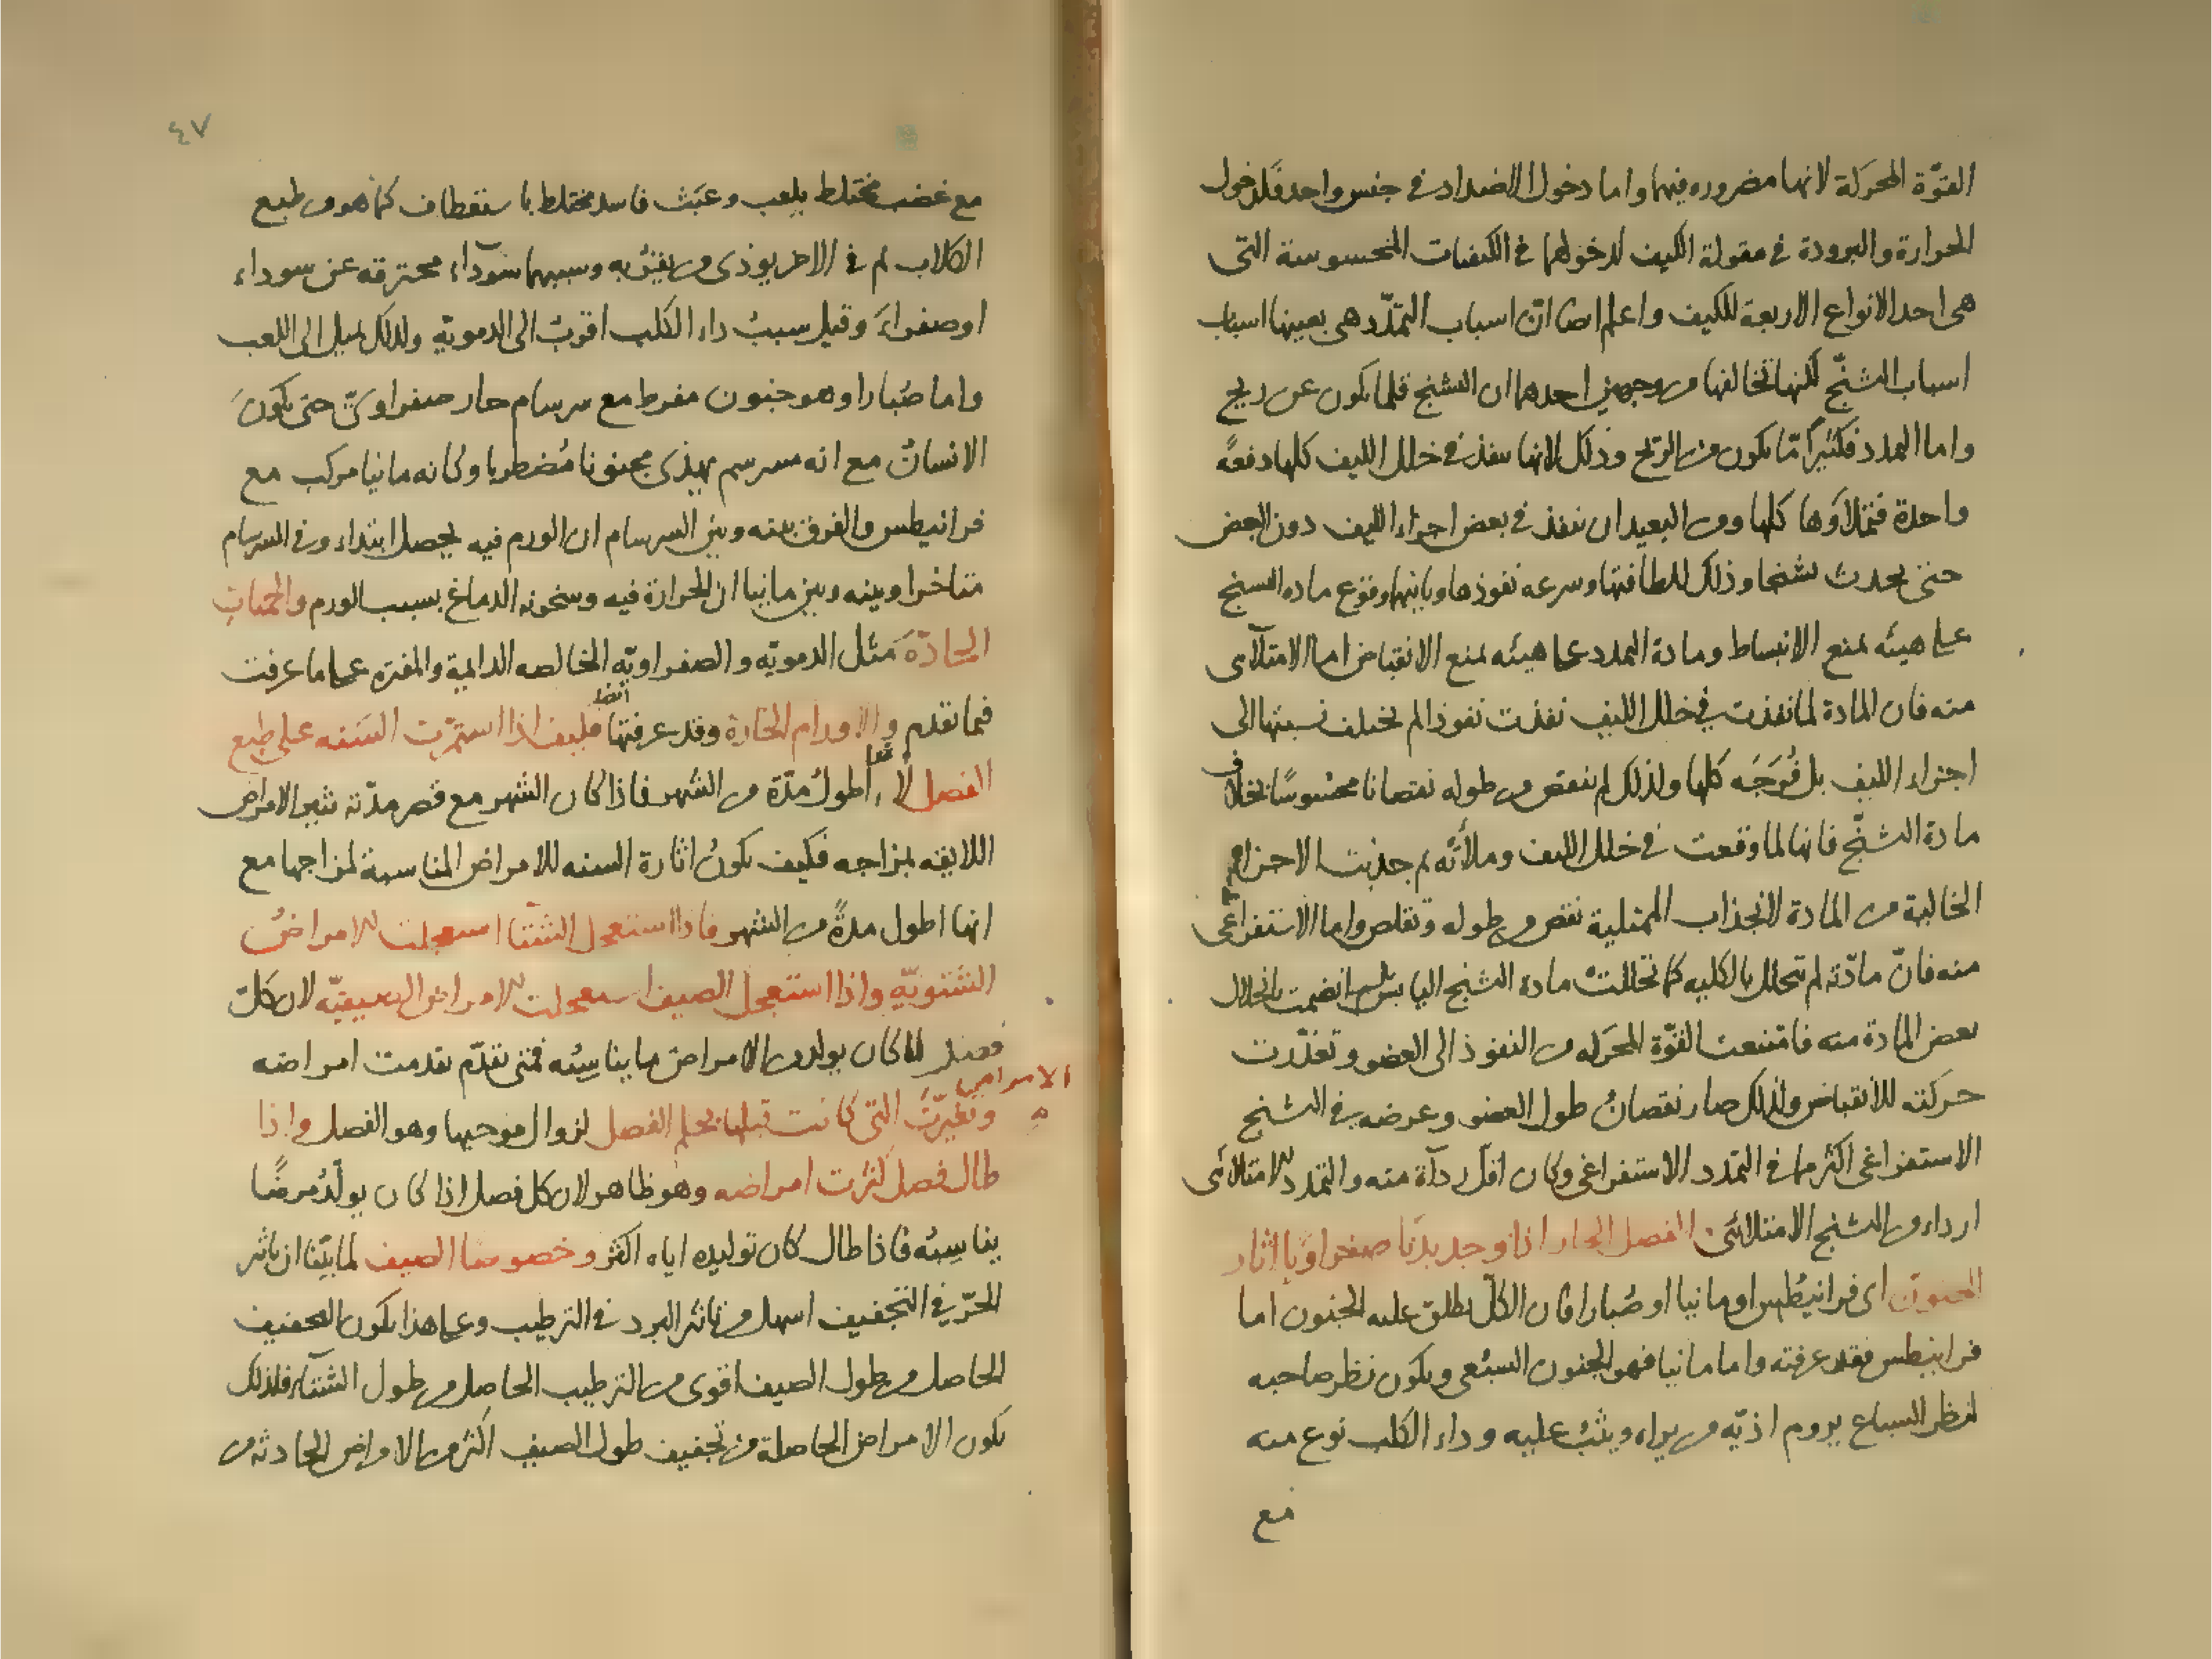 القوّة المحركة لانها مضروره فيهما واما دخول الاضداد في جنس واحد فلدخول
الحرارة والبرودة في مقولة الكيف لدخولهما في الكيفيات المحسوسة التى
هى احد الانواع الاربعة للكيف واعلم ايضا انّ اسباب التمدّد هى بعينها اسباب
اسباب التشنّج لكنها تخالفها من وجهين احدهما ان التشنج قلما يكون عن ريح
واما التمدد فكثيرًا مّا يكون من الريح وذلك لانها تنفذ في خلل الليف كلها دفعةً
واحدة فتملاؤها كلها ومن البعيد ان تنفذ في بعض اجزاء الليف دون البعض
حتى يحدث تشنجا وذلك للطافتها وسرعه نفوذها وثانيهما وقوع ماده التشنج
على هيئه تمنع الانبساط ومادة التمدد على هيئه تمنع الانقباض اما الامتلآى
منه فان المادة لما نفذت في خلل الليف نفذت نفوذا لم يختلف نسبتها الى
اجزاء الليف بل فُوَجَه كلها ولذلك لم ينقص من طوله نقصانا محسوسًا بخلاف
مادة التشنّج فانها لما وقعت في خلل الليف وملأته ثم جذبت الاجزاء
الخالية من المادة لانجذاب الممتلية نقص من طوله وتقلص واما الاستفراغى
منه فانّ مادّته لم تتحلل بالكليه كما تحللت مادة التشنج اليابس بل انضمت بانحلال
بعض المادة منه فامتنعت القوّة المحركه من النفوذ الى العضو وتعذّرت
حركته للانقباض ولذلك صار نقصانُ طول العضو وعرضه في التشنج
الاستفراغى اكثر مما في التمدد الاستفراغى وكان اقلّ ردآة منه والتمدد الامتلائى
ارداء من التشنج الامتلائى الفصل الحار اذا وجد بدنًا صفراويًا اثار
الجنون اى فرانيطس او مانيا او صُبارا فان الكلّ يطلق عليه الجنون اما
فرانيطس فقد عرفته واما مانيا فهو الجنون السبُعى ويكون نظر صاحبه
كنظر السباع يروم اذيّه من يراه ويثبُ عليه وداء الكلب نوع منه
مع
٤٧
مع غضب مختلط بلعب وعَبَث فاسد مختلط باستعطاف كما هو من طبع
الكلاب ثم في الاخر يوذى من يثق به وسببهما سَودآء محترقه عن سوداء
او صفراءَ وقيل سببُ داء الكلب اقربُ الى الدمويّه ولذلك تميل الى اللعب
واما صُبارا وهو جنون مفرط مع سرسام حار صفراوىّ حتى يكونَ
الانسانُ مع انه مسرسم يهذى مجنونا مُضطربا وكانه مانيا مركب مع
فرانيطس والفرق بينه وبين السرسام ان الورم فيه يحصل ابتداء وفى السرسام
متاخرا وبينه وبين مانيا ان الحرارة فيه وسخونه الدماغ بسبب الورم والحميات
الحادّةَ مَثل الدمويّه والصفراويّه الخالصه الدايمة والمفتره على ما عرفت
فيما تقدم والاورام الحارة وقد عرفتها ايضا فكيف اذا استمرّت السَنه على طبع
الفصل لانها اطولُ مدّة من الشهر فاذا كان الشهر مع قصر مدّته تثير الامراض
اللايقه بمزاجه فكيف يكونُ اثارة السنه للامراض المناسبة لمزاجها مع
انها اطول مدةً من الشهر فاذا استعجل الشتا استعجلت الامراضُ
الشتويّه واذا استعجل الصيف استعجلت الامراض الصيفيّه لان كلّ
فصل لما كان يولد من الامراض ما يناسِبُه فمتى تقدّم تقدمت امراضه
وتغيّرت الامراض التى كانت قبلها بحكم الفصل لزوال موجبها وهو الفصل واذا
طال فصل كثرت امراضه وهو ظاهر لان كل فصل اذا كان يولّدُ مرضًا
يناسِبُه فاذا طال كان توليده اياه اكثر وخصوصا الصيف لما بيّنا ان تاثير
الحرّ في التجفيف اسهل من تاثير البرد في الترطيب وعلى هذا يكون التجفيف
الحاصل من طول الصيف اقوى من الترطيب الحاصل من طول الشتآء فلذلك
يكون الامراض الحاصلة من تجفيف طول الصيف اكثر من الامراض الحادثه من